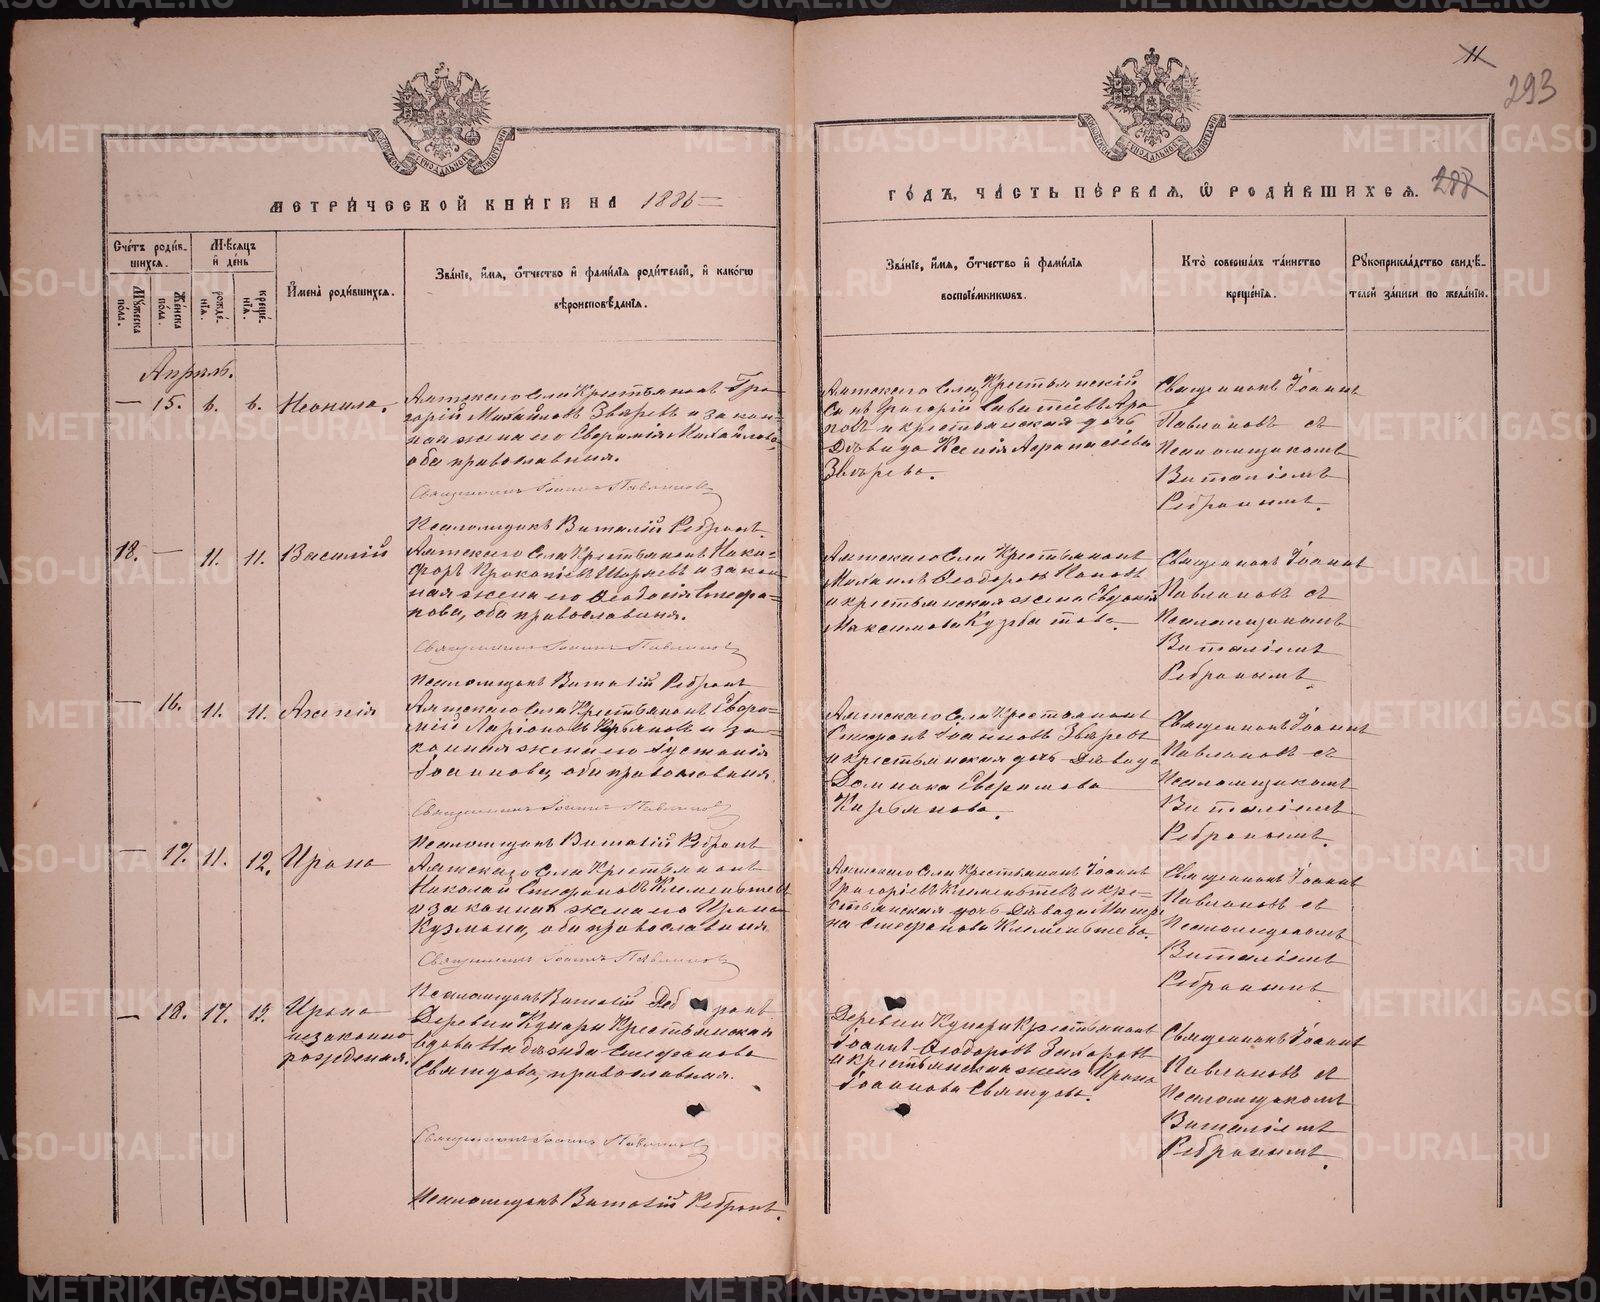 11
293
288
МЕТРИ́ЧЕСКОЙ КНИ́ГИ НА 1886
ГО́ДЪ, ЧА́СТЬ ПЕ́РВАЯ, Ѽ РОДИ́ВШИХСЯ.
Сче́тъ роди́в-
шихся.
Му́жеска
по́ла.
Же́нска
по́ла.
Мѣ́сяцъ
и҆ де́нь
рожде́-
нїя.
креще́-
нїя.
И҆мена̀ роди́вшихся.
Зва́нїе, и҆́мя, ѻ҆́тчество и҆ фами́лїя роди́телей, и҆ како́гѡ
вѣроисповѣ́данїя.
Зва́нїе, и҆́мя, ѻ҆́тчество и҆ фами́лїя
воспрїе́мникѡвъ.
Кто̀ соверша́лъ та́инство
креще́нїя.
Рꙋкоприкла́дство свидѣ́-
телей за́писи по жела́нїю.
Апрѣль.
— 15. 6. 6. Неонила.
Аятскаго Села Крестьянинъ Гри-
горій Михайловъ Звѣревъ и закон-
ная жена его Евфимія Михайлова,
оба православныя.
Священникъ Іоаннъ Павлиновъ
Псаломщикъ Виталій Ребринъ.
Аятскаго Села Крестьянскій
Сынъ Григорій Савватіевъ
и крестьянская дочь
Дѣвица Ксенія
Звѣрева.
Священникъ Іоаннъ
Павлиновъ съ
Псаломщикомъ
Виталіемъ
Ребринымъ.
18. — 11. 11. Василій
Аятскаго Села Крестьянинъ Ники-
форъ Прокопіевъ и закон-
ная жена его Ѳеодосія Стефа-
нова, оба православныя.
Священникъ Іоаннъ Павлиновъ
Псаломщикъ Виталій Ребринъ
Аятскаго Села Крестьянинъ
Михаилъ Ѳеодоровъ Поповъ
и крестьянская жена Евдокія
Максимова
Священникъ Іоаннъ
Павлиновъ съ
Псаломщикомъ
Виталіемъ
Ребринымъ.
— 16. 11. 11.
Аятскаго Села Крестьянинъ Евфи-
мій Ларіоновъ Кирьяновъ и за-
конная жена его Іустинія
Іоаннова, оба православныя.
Священникъ Іоаннъ Павлиновъ
Псаломщикъ Виталій Ребринъ
Аятскаго Села Крестьянинъ
Стефанъ Іоанновъ Звѣревъ
и крестьянская дочь Дѣвица
Домника Евфимова
Кирьянова.
Священникъ Іоаннъ
Павлиновъ съ
Псаломщикомъ
Виталіемъ
Ребринымъ.
— 17. 11. 12. Ирина
Аятскаго Села Крестьянинъ
Николай Стефановъ Клементьевъ
и законная жена его Ирина
Кузмина, оба православныя
Священникъ Іоаннъ Павлиновъ
Псаломщикъ Виталій Ребринъ.
Аятскаго Села Крестьянинъ Іоаннъ
Григоріевъ Клементьевъ и кре-
стьянская дочь Дѣвица
Стефанова Клементьева.
Священникъ Іоаннъ
Павлиновъ съ
Псаломщикомъ
Виталіемъ
Ребринымъ.
— 18. 17. Ирина
незаконно
рожденная.
Деревни Кунары Крестьянская
вдова Надежда Стефанова
православная.
Священникъ Іоаннъ Павлиновъ
Псаломщикъ Виталій Ребринъ.
Деревни Кунары Крестьянинъ
Іоаннъ Ѳеодоровъ Захаровъ
и крестьянская жена Ирина
Іоаннова
Священникъ Іоаннъ
Павлиновъ съ
Псаломщикомъ
Виталіемъ
Ребринымъ.
METRIKI.GASO-URAL.RU